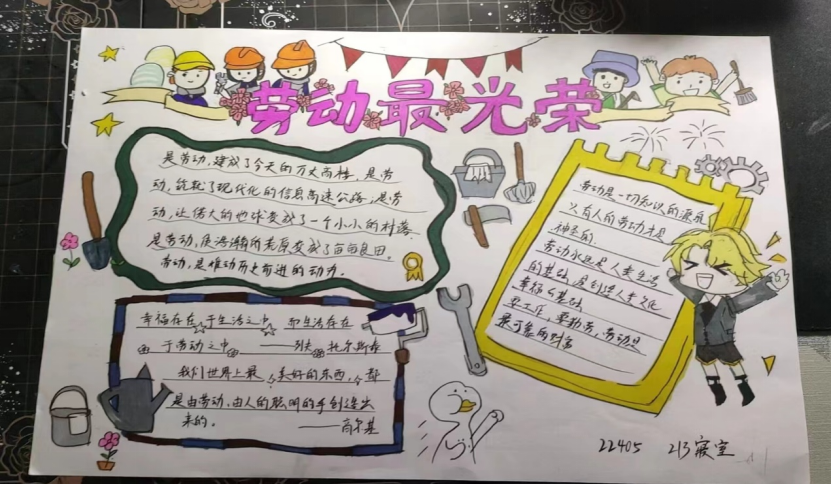 劳动最光荣
是劳动,建成了今天的万丈高楼,是劳
动,筑就了现代化的信息高速公路,是劳
动,让偌大的地球变成了一个小小的村落
是劳动,使浩瀚的荒原变成了亩亩良田。
劳动,是推动历史前进的动力。
幸福存在于生活之中,而生活存在
于劳动之中 ——列夫·托尔斯泰
我们世界上最美好的东西,都
是由劳动,由人的聪明的手创造出
来的。 ——高尔基
劳动是一切知识的源泉
只有人的劳动才是
神圣的
劳动永远是人类生活
的基础,是创造人类文化
幸福的基础
要工作,要勤劳,劳动是
最可靠的财富
22405 213寝室